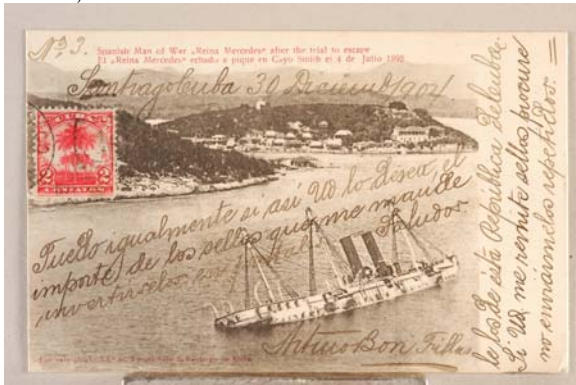 Nº 3.
Spanish Man of War „Reina Mercedes" after the trial to escape
El „Reina Mercedes" echado a pique en Cayo Smith el 4 de Julio 1898
Santiago Cuba 30 Diciemb 1902
CUBA
2 2
CENTAVOS
Puedo igualmente si así Ud lo desea, el
importe de los sellos que me mande
invertírcelos en postales. Saludos
Arturo Bon
les de ésta República de Cuba.
Si Ud. me remite sellos procure
no enviármelos repetidos.